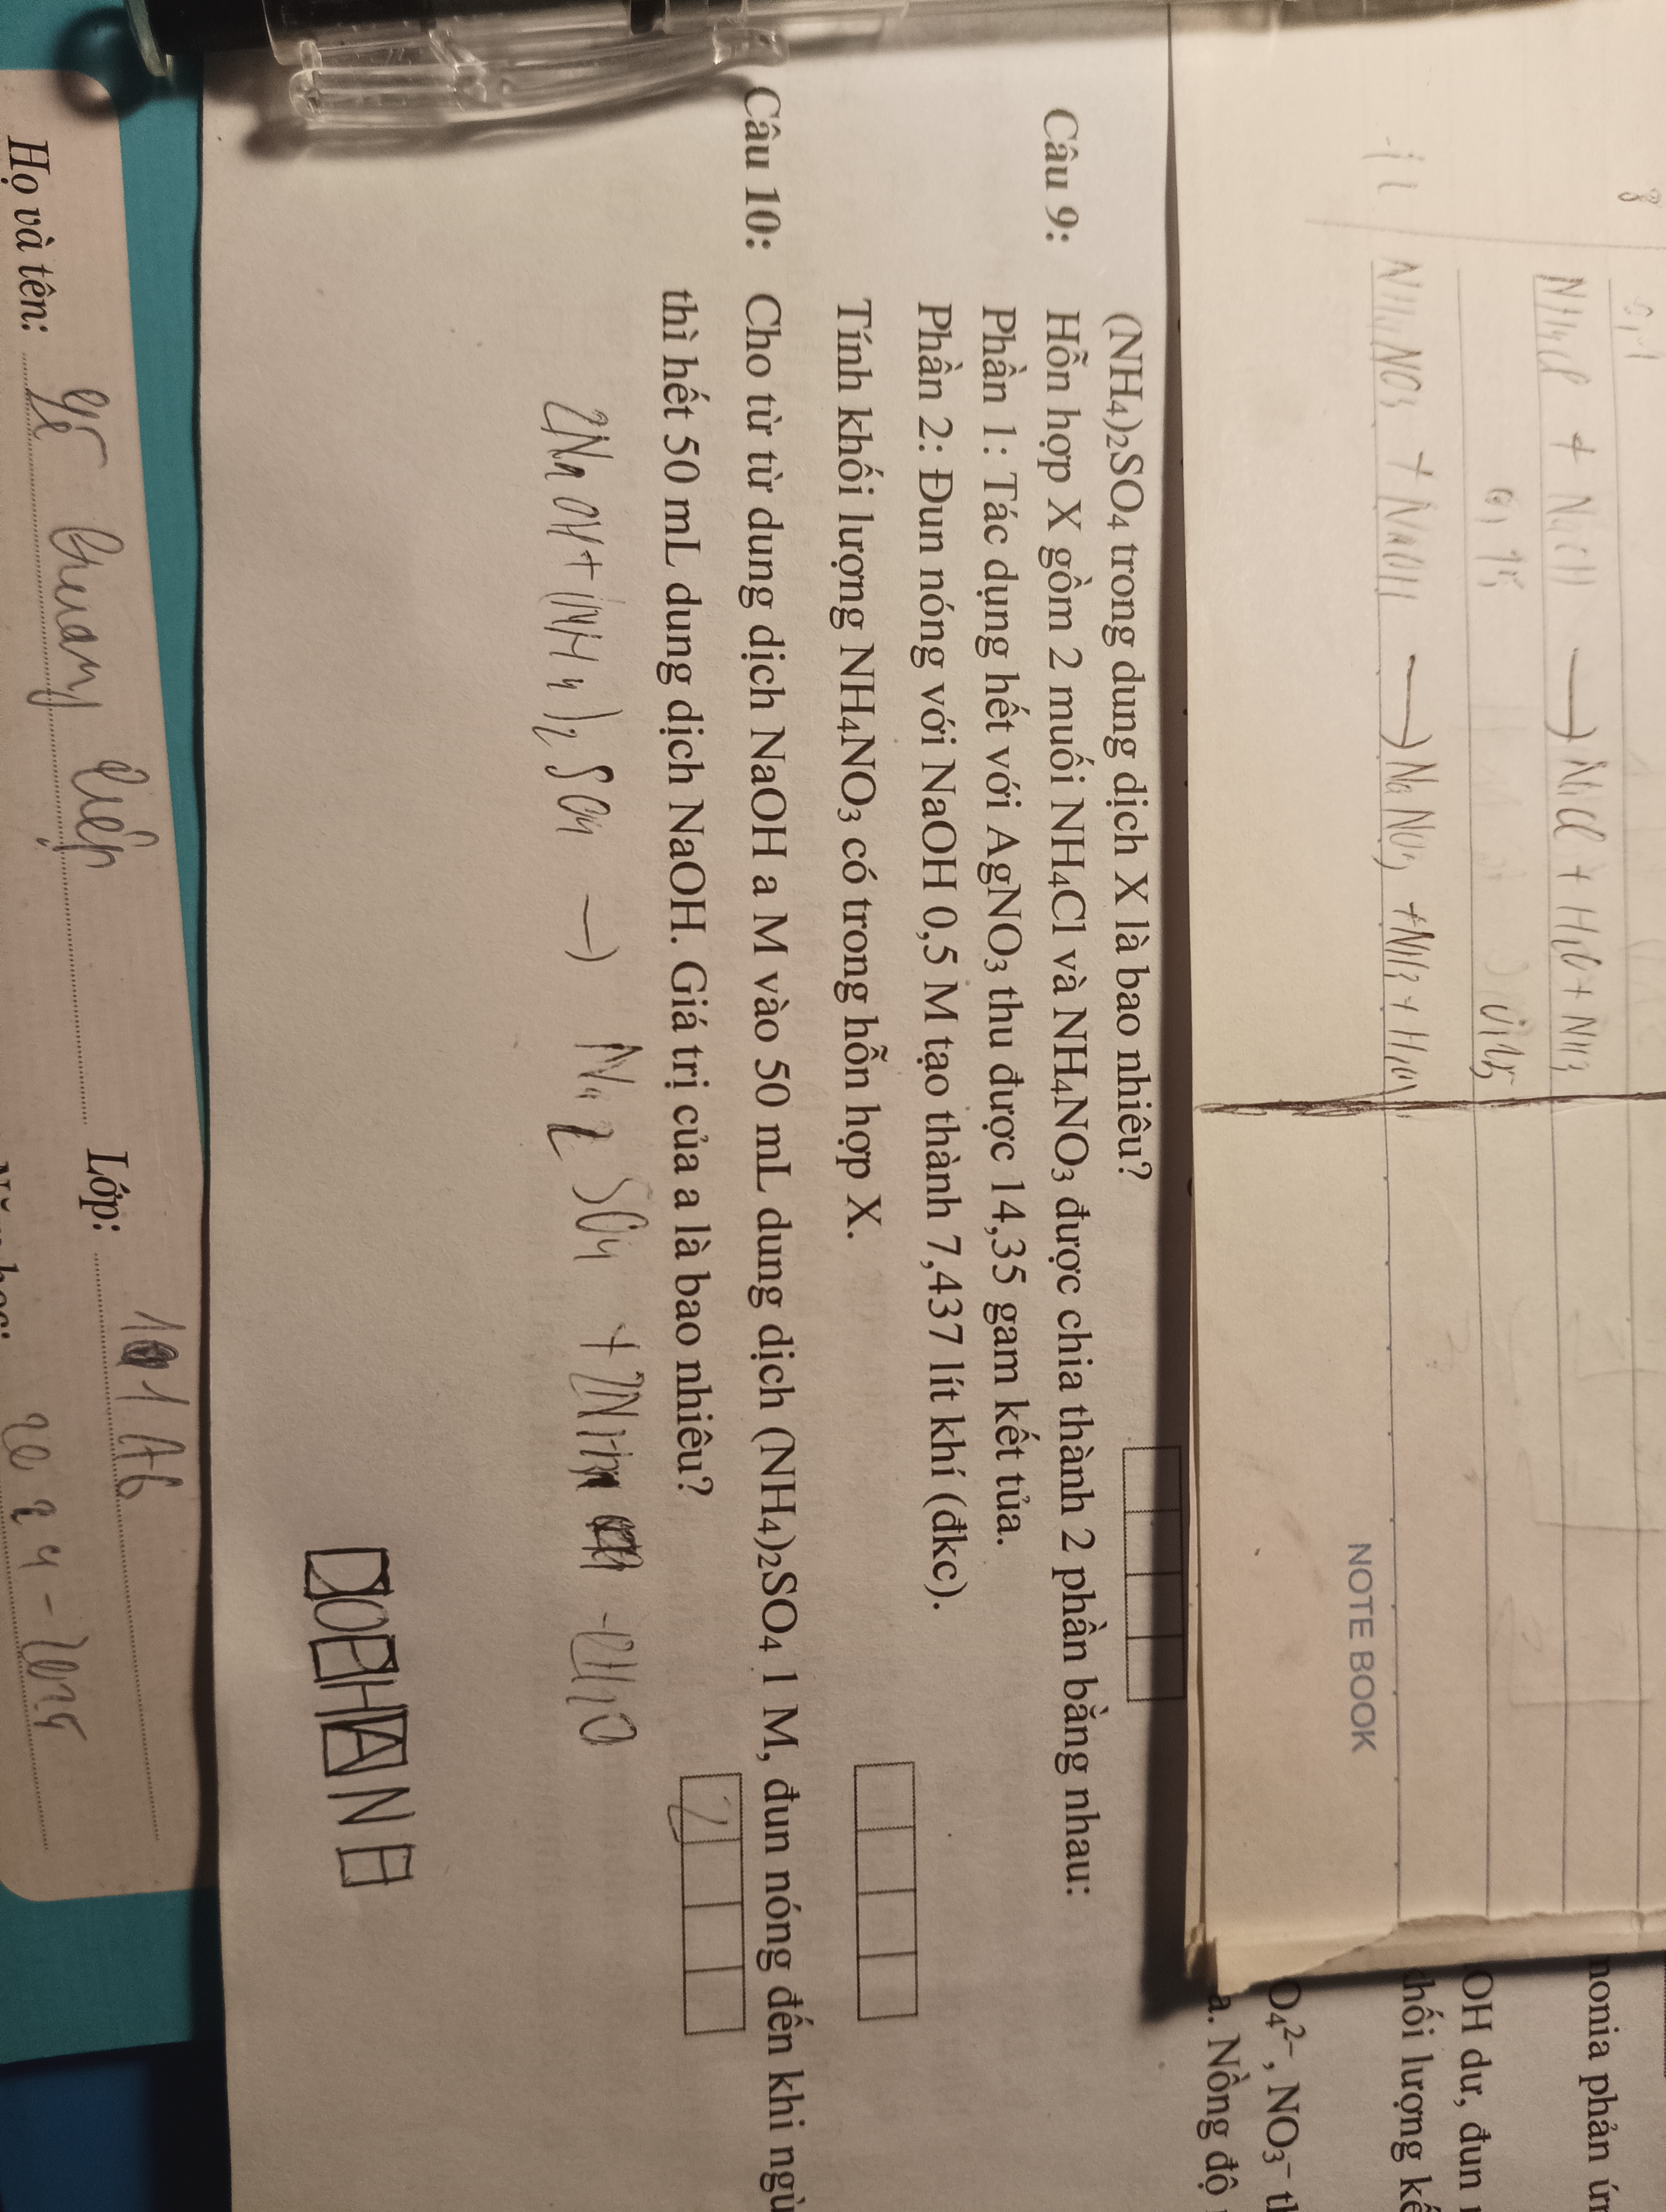 NH4Cl + NaOH → NaCl + H2O + NH3
NH4NO3 + NaOH → NaNO3 + NH3 + H2O
NOTE BOOK
monia phản ứn
OH dư, đun
khối lượng kế
O₄²⁻, NO₃⁻ th
a. Nồng độ
(NH₄)₂SO₄ trong dung dịch X là bao nhiêu?
Câu 9: Hỗn hợp X gồm 2 muối NH₄Cl và NH₄NO₃ được chia thành 2 phần bằng nhau:
Phần 1: Tác dụng hết với AgNO₃ thu được 14,35 gam kết tủa.
Phần 2: Đun nóng với NaOH 0,5 M tạo thành 7,437 lít khí (đkc).
Tính khối lượng NH₄NO₃ có trong hỗn hợp X.
Câu 10: Cho từ từ dung dịch NaOH a M vào 50 mL dung dịch (NH₄)₂SO₄ 1 M, đun nóng đến khi ngừ
thì hết 50 mL dung dịch NaOH. Giá trị của a là bao nhiêu?
2
2NaOH + (NH4)2SO4 → Na2SO4 + 2NH3 + 2H2O
DOPHANH
Họ và tên: Lớp: 11A6